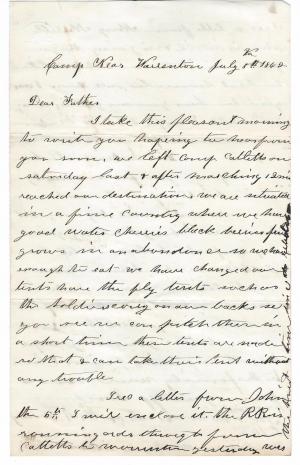 Va
Camp Near Warrenton July 8th 1862
Dear Father
I take this pleasant morning
to write you hoping to hear from
you soon, we left camp Catlett on
saturday last & after marching 12 mi
reached our destination, we are situated
in a fine Country where we have
good water cherries black berries fruit
grows in an abondance so we have
enough to eat we have changed our
tents have the fly tents such as
the soldiers carry on our backs so
you see we can pitch them in
a short time these tents are made
so that I can take their tent without
any trouble
I red a letter from John
the 6th I will enclose it. the R R is
running cars through from
Catletts to warrenton yesterday was